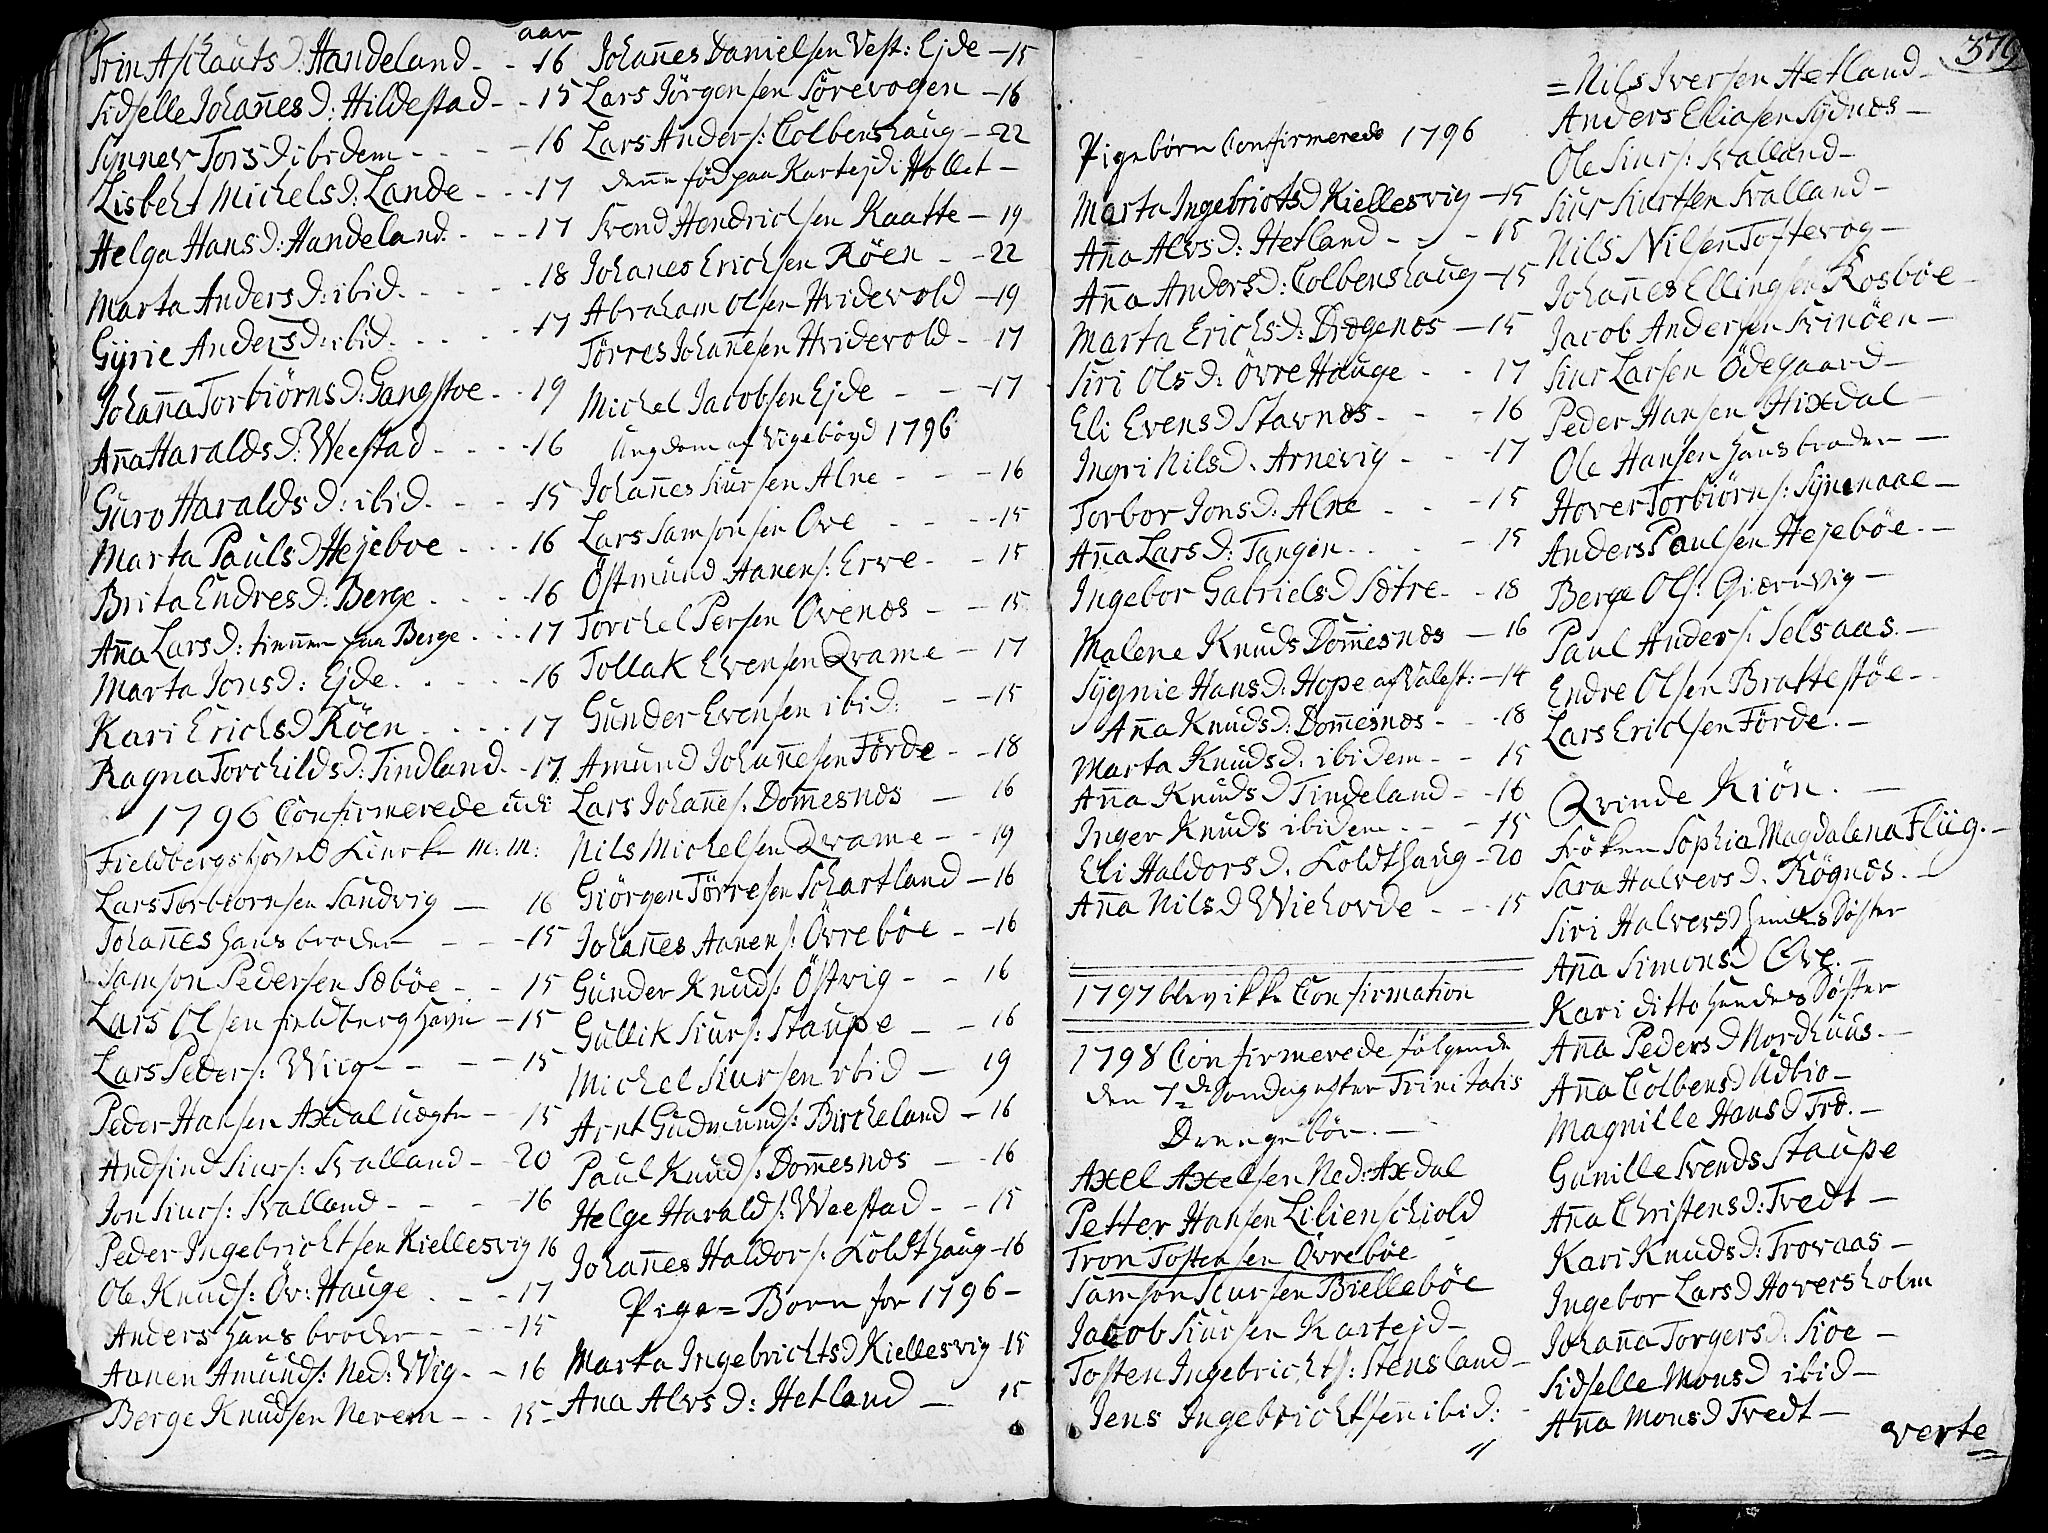 aar
Trin Aschauts D: Handeland - - 16
Sidselle Johan̄es D: Hildestad - - 15
Synnev Tors D ibidem - - - 16
Lisbeht Michels D: Lande - - - 17
Helga Hans D: Handeland - - - 17
Marta Anders D: ibid. - - - - 18
Gÿrie Anders D: ibid. - - - - 17
Johan̄a Torbiörns D: Gangstoe - - 19
An̄a Haralds D: Weestad - - - 16
Guro Haralds D: ibid. - - - 15
Marta Pauls D Hejeboe - - - 16
Brita Endres D: Berge - - - 16
An̄a Lars D: tienner paa Berge - - 17
Marta Jons D: Ejde - - - - 16
Kari Erichs D Röen - - - - 17
Ragna Torchilds D: Tindland - - 17
1796 Confirmerede udi
Fieldbergs Hovet Kircke m: m:
Lars Torbiornsen Sandvig — 16
Johan̄es hans broder - - - 15
Samson Pedersen Sæböe - - 15
Lars Olsen fieldberg Havn - 15
Lars Peders: Wiig - - - - 15
Peder Hansen Axdal - 15
Andsind Siurs: Svalland - 20
Jon Siurs: Svalland - - - 16
Peder Ingebrichtsen Kiellesvig 16
Ole Knuds: Öv: Hauge - - - 17
Anders hans broder - - - 15
Aanen Amunds: Ned: Wig - - 16
Berge Knudsen Nerem - - 15
Johan̄es Danielsen Vest: Ejde - 15
Lars Jörgensen Sörevogen - 16
Lars Anders: Colbenshaug - 22
denne föd paa Kartejd i Hollet -
Svend Hendrichsen Kaatte - 19
Johan̄es Erichsen Röen - - 22
Abraham Olsen Hvidevold - 19
Törres Johan̄esen Hvidevold - 17
Michel Jacobsen Ejde - - 17
Ungdom af Vigebögd 1796
Johan̄es Siursen Alne - - 16
Lars Samsonsen Ove - - - 15
Östmund Aanens: Erve - - 15
Torchel Persen Ovenæs - - 15
Tollak Evensen Qvame - 17
Gunder Evensen ibid: - - 15
Amund Johan̄esen Förde - - 18
Lars Johan̄es: Dom̄esnæs - 16
Nils Michelsen Qvame - - 19
Giörgen Törresen Schartland - 16
Johan̄es Aanens: Övreböe - - 16
Gunder Knuds: Östvig - - 16
Gullik Siurs: Staupe - - 16
Michel Siursen ibid - 19
Arnt Gudmunds: Bircheland - 16
Paul Knuds: Dom̄esnæs - - 16
Helge Haralds: Weestad - - 15
Johan̄es Haldors: Koldthaug - 16
Pige = Born for 1796 -
Marta Ingebrichts D Kiellesvig - 15
Ana Alvs D: Hetland — 15
Pigebörn Confirmerede 1796
Marta Ingebriots D Kiellesvig - 15
An̄a Alvs D: Hetland - - - 15
An̄a Anders D: Colbenshaug - 15
Marta Erichs D: Drogenæs - 15
Siri Ols D: Övre Hauge - - 17
Eli Evens D Stavnæs - - - 16
Ingri Nils D. Arnevig - - 17
Torbor Jons D: Alne - - - 15
An̄a Lars D: Tangen - - - 15
Ingebor Gabriels D Sætre - - 18
Malene Knuds Dom̄esnæs - 16
Sÿgnie Hans D: Hope af Valest: - 14
An̄a Knuds D: Dom̄esnæs - - 18
Marta Knuds D. ibidem - - 15
An̄a Knuds D Tindeland - - 16
Inger Knuds ibidem - - - 15
Eli Haldors D. Koldthaug - 20
An̄a Nils D Wiehovde - - - 15
1797 blev ikke Confirmation
1798 Confirmerede fölgende
den 7de Söndag efter Trinitatis
Drengebör. -
Axel Axelsen Ned: Axdal
Petter Hansen Lilienschiold
Tron Tostensen Övreböe
Samson Siursen Bielleböe
Jacob Siursen Kartejd -
Tosten Ingebrichts: Stensland -
Jens Ingebrichtsen ibid: -
379
= Nils Iversen Hetland -
Anders Eliasen Sÿdnæs -
Ole Siurs: Svalland -
Siur Siursen Svalland -
Nils Nilsen Toftevog -
Johan̄es Ellingsen Rosböe -
Jacob Andersen Svinöen -
Siur Larsen Ödegaard -
Peder Hansen Hixdal -
Ole Hansen hans broder -
Hover Torbiörns: Sÿnenaae -
Anders Paulsen Hejeböe. -
Berge Ols: Giærevig -
Paul Anders: Selsaas. -
Endre Olsen Brattestöe -
Lars Erichsen Förde. -
Qvinde Kiön. -
Fröken Sophia Magdalena Flüg. -
Sara Halvers D. Rögnæs. -
Siri Halvers D hendes Söster
An̄a Simons D Ove. -
Kari ditto hendes Söster
An̄a Peders D Nordhuus. -
An̄a Colbens D Udbio -
Magnille Hans D Trö. -
Gunille Svends Staupe
An̄a Christens D: Tvedt -
Kari Knuds D: Trovaas -
Ingebor Lars D Hoversholm
Johan̄a Torgers D: Sioe -
Sidselle Mons D ibid -
An̄a Mons D Tvedt -
verte